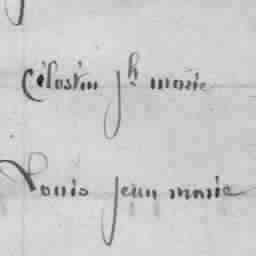 Célestin jh marie
Louis jean marie